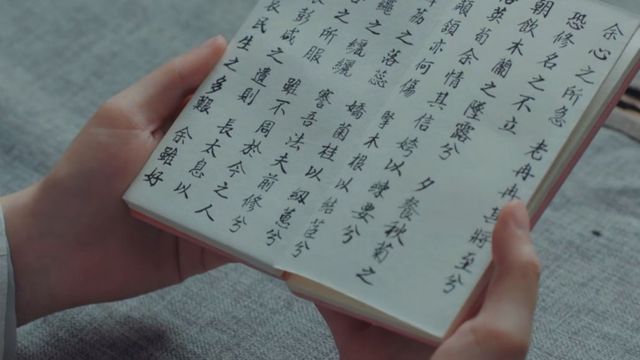 余心之所急 老冉冉其將至兮
恐修名之不立
朝飲木蘭之墜露兮 夕餐秋菊之
英苟余情其信姱以練要兮
顑頷亦何傷 擥木根以結茝兮
荔之落蕊 矯菌桂以紉蕙兮
之纚纚 謇吾法夫前修兮
之所服 雖不周於今之人
彭咸之遺則 長太息以
哀民生之多艱 余雖好